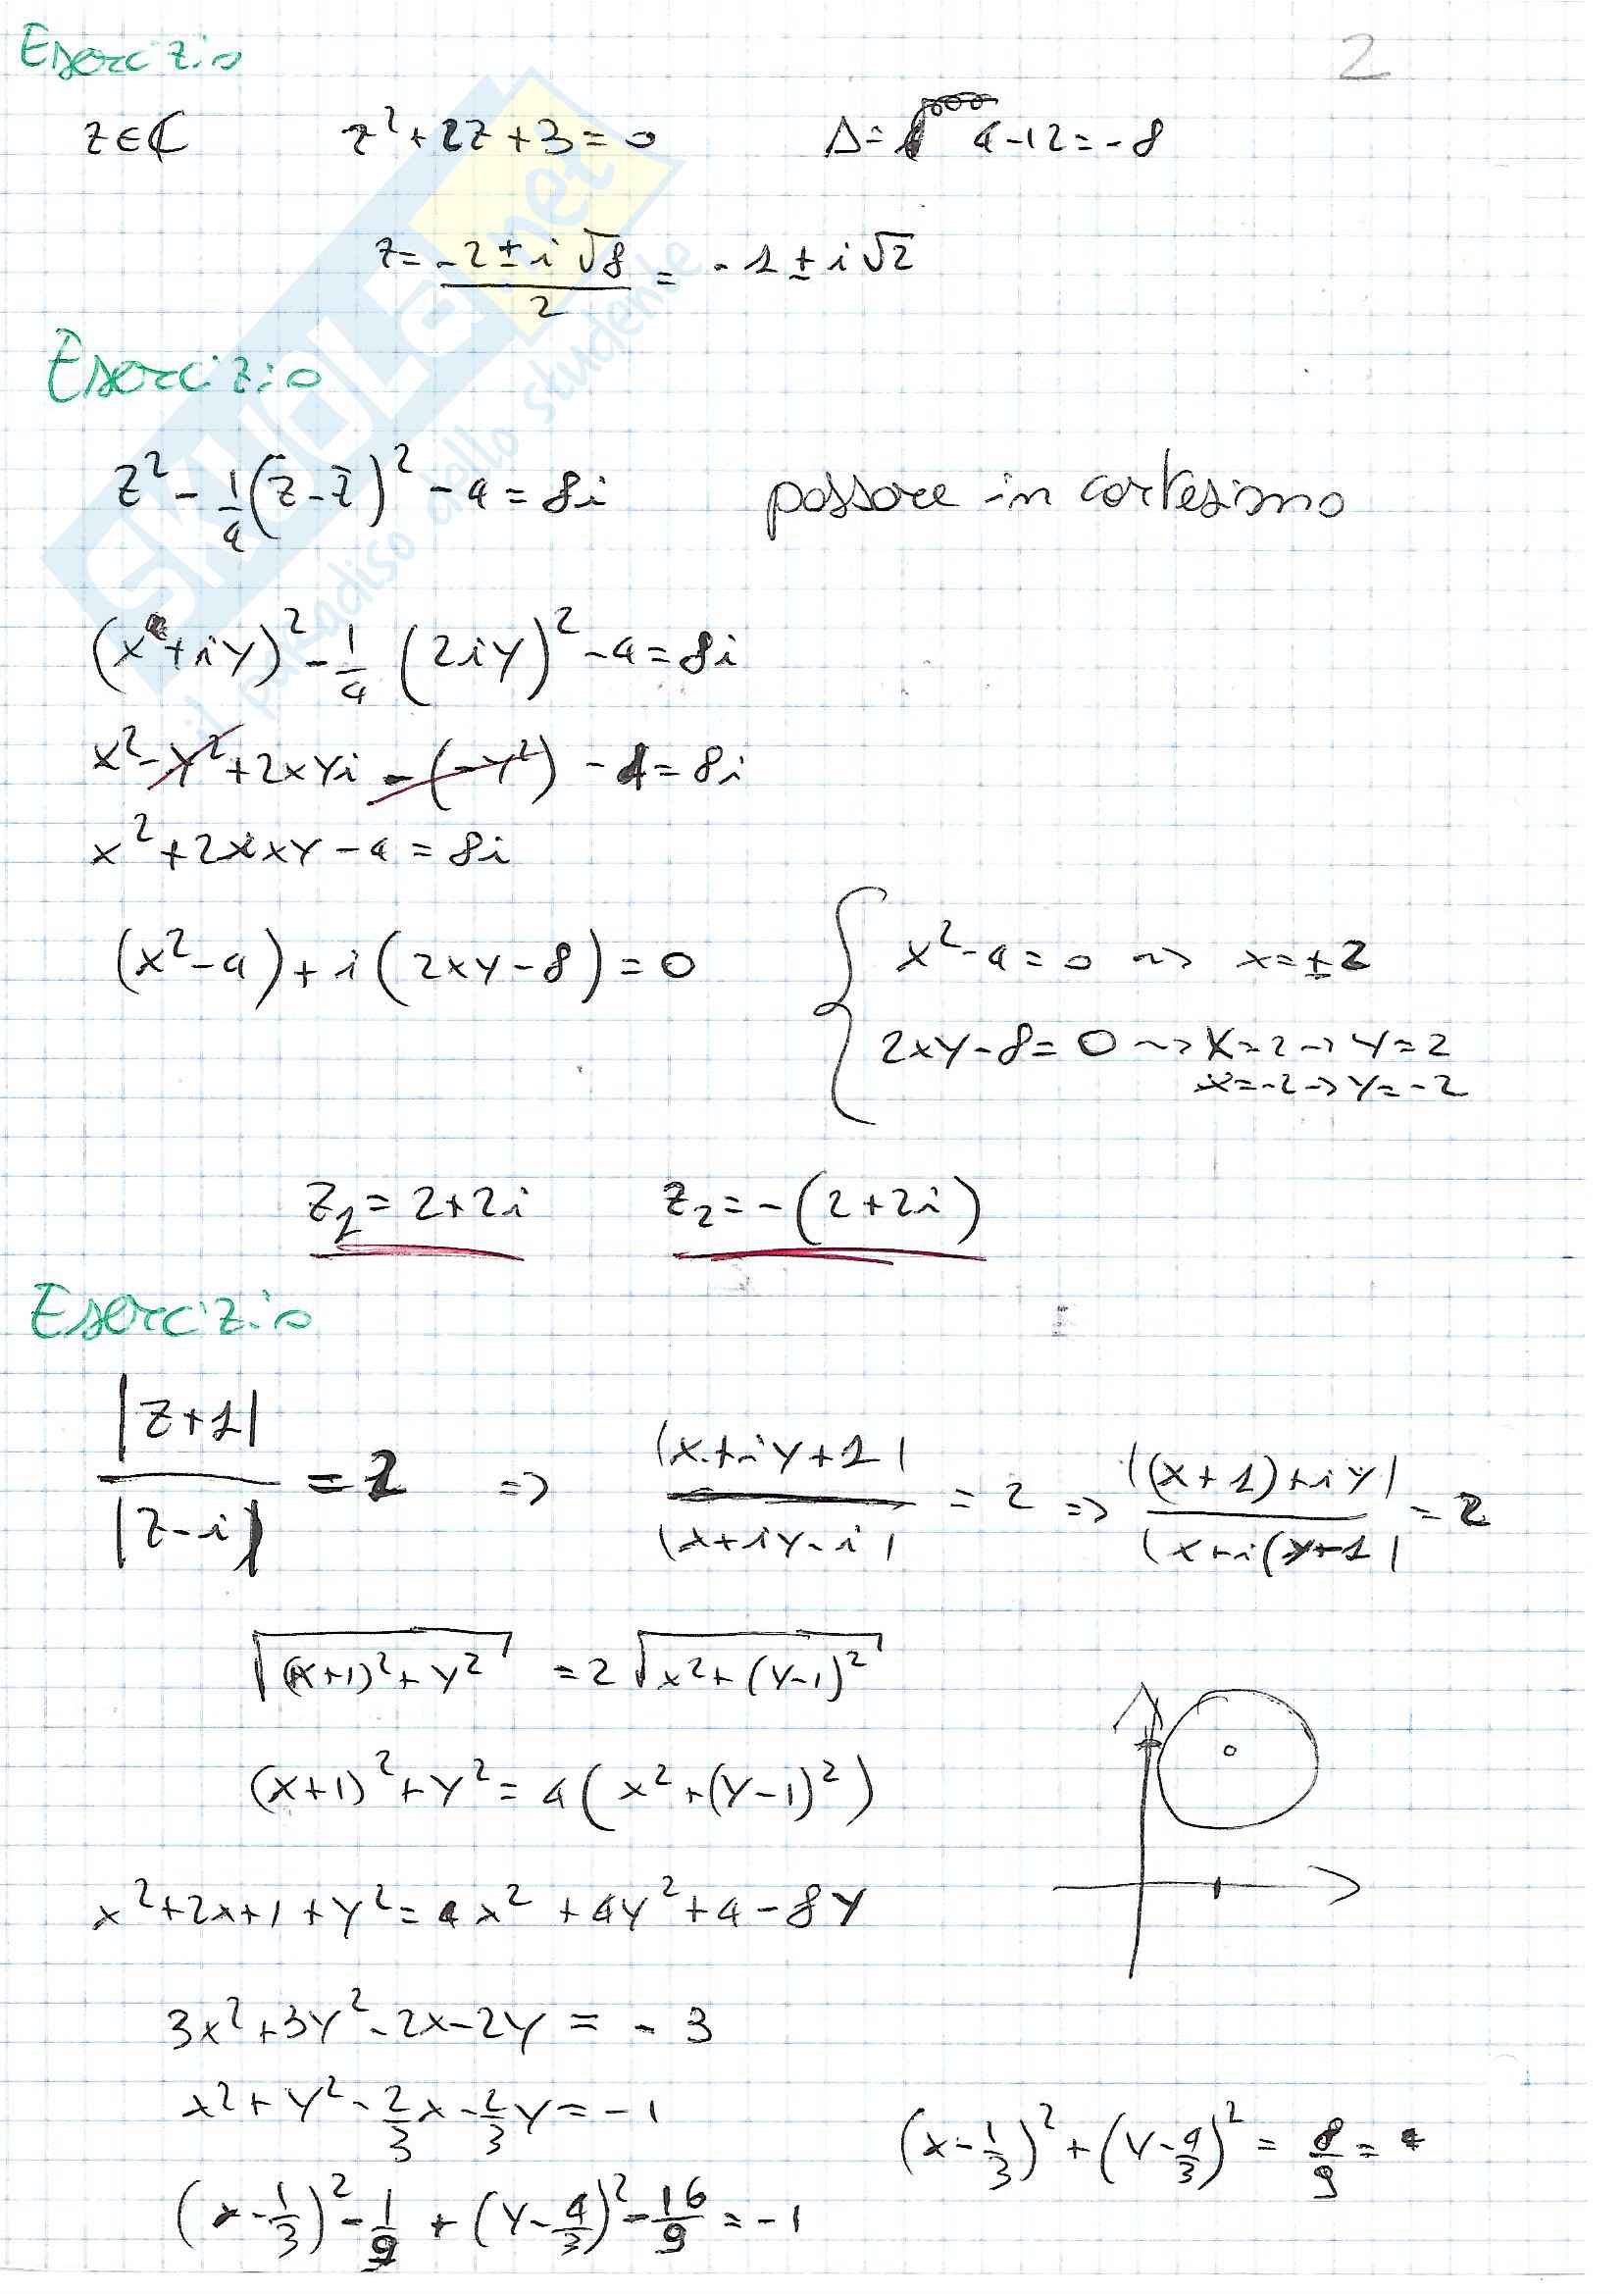 Esercizio 2
z∈ℂ z²+2z+3=0 Δ= 4-12=-8
z= (-2±i√8)/2 = -1±i√2
Esercizio
z² - 1/4(z-z̄)² - 4 = 8i passare in cartesiano
(x+iy)² - 1/4 (2iy)² - 4 = 8i
x²-y²+2xyi-(-y²) - 4 = 8i
x²+2ixy-4 = 8i
(x²-4)+i(2xy-8)=0 { x²-4=0 ~> x=±2
2xy-8=0 ~> x=2 -> y=2
x=-2 -> y=-2
z₁=2+2i z₂=-(2+2i)
Esercizio
|z+1|/|z-i| = 2 => |x+iy+1|/|x+iy-i| = 2 => |(x+1)+iy|/|x+i(y-1| = 2
√((x+1)²+y²) = 2√(x²+(y-1)²)
(x+1)²+y² = 4(x²+(y-1)²)
x²+2x+1+y² = 4x²+4y²+4-8y
3x²+3y²-2x-2y = -3
x²+y²-2/3x-2/3y = -1
(x-1/3)²+(y-4/3)² = 8/9 =
(x-1/3)²-1/9+(y-4/3)²-16/9 = -1
SKUOLA.net
il paradiso dello studente